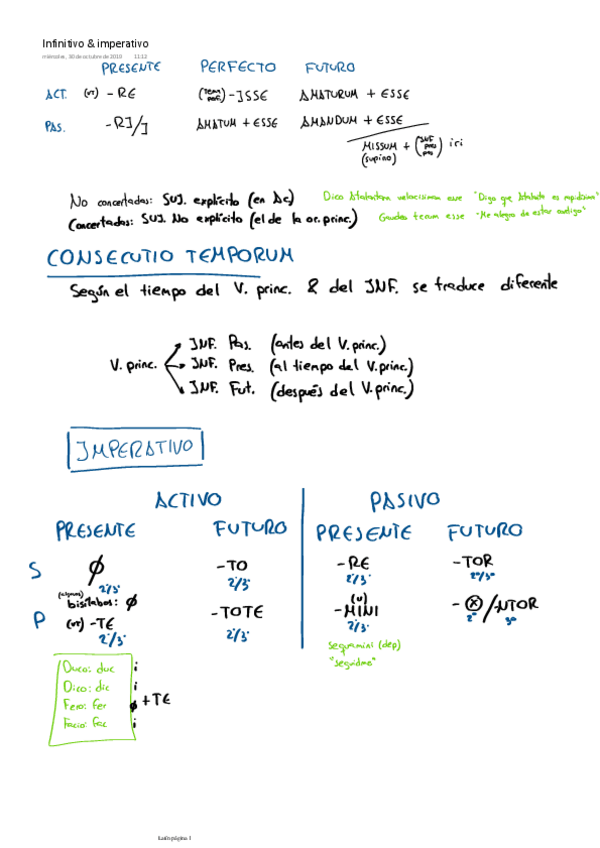 Infinitivo & imperativo
miércoles, 30 de octubre de 2019 11:12
PRESENTE PERFECTO FUTURO
ACT. (VT) -RE (TEMA PERF.) -ISSE AMATURUM + ESSE
PAS. -RI/I AMATUM + ESSE AMANDUM + ESSE
MISSUM + (INF pres pas) iri
(supino)
No concertadas: SUJ. explícito (en Ac) Dico Atalantam velocissimam esse "Digo que Atalanta es rapidísima"
Concertadas: SUJ. No explícito (el de la or. princ.) Gaudeo tecum esse "Me alegro de estar contigo"
CONSECUTIO TEMPORUM
Según el tiempo del V. princ. & del INF. se traduce diferente
INF. Pas. (antes del V. princ.)
V. princ. INF. Pres. (al tiempo del V. princ.)
INF. Fut. (después del V. princ.)
IMPERATIVO
ACTIVO PASIVO
PRESENTE FUTURO PRESENTE FUTURO
S ∅ -TO -RE -TOR
2ª/3ª 2ª/3ª 2ª/3ª 2ª/3ª
(algunos) bisílabos: ∅
P (VT) -TE -TOTE (U) -MINI -ⓧ/NTOR
2ª/3ª 2ª/3ª 2ª/3ª 2ª 3ª
Sequimini (dep)
"seguidme"
Duco: duc i
Dico: dic i
Fero: fer ∅ +TE
Facio: fac i
Latín página 1